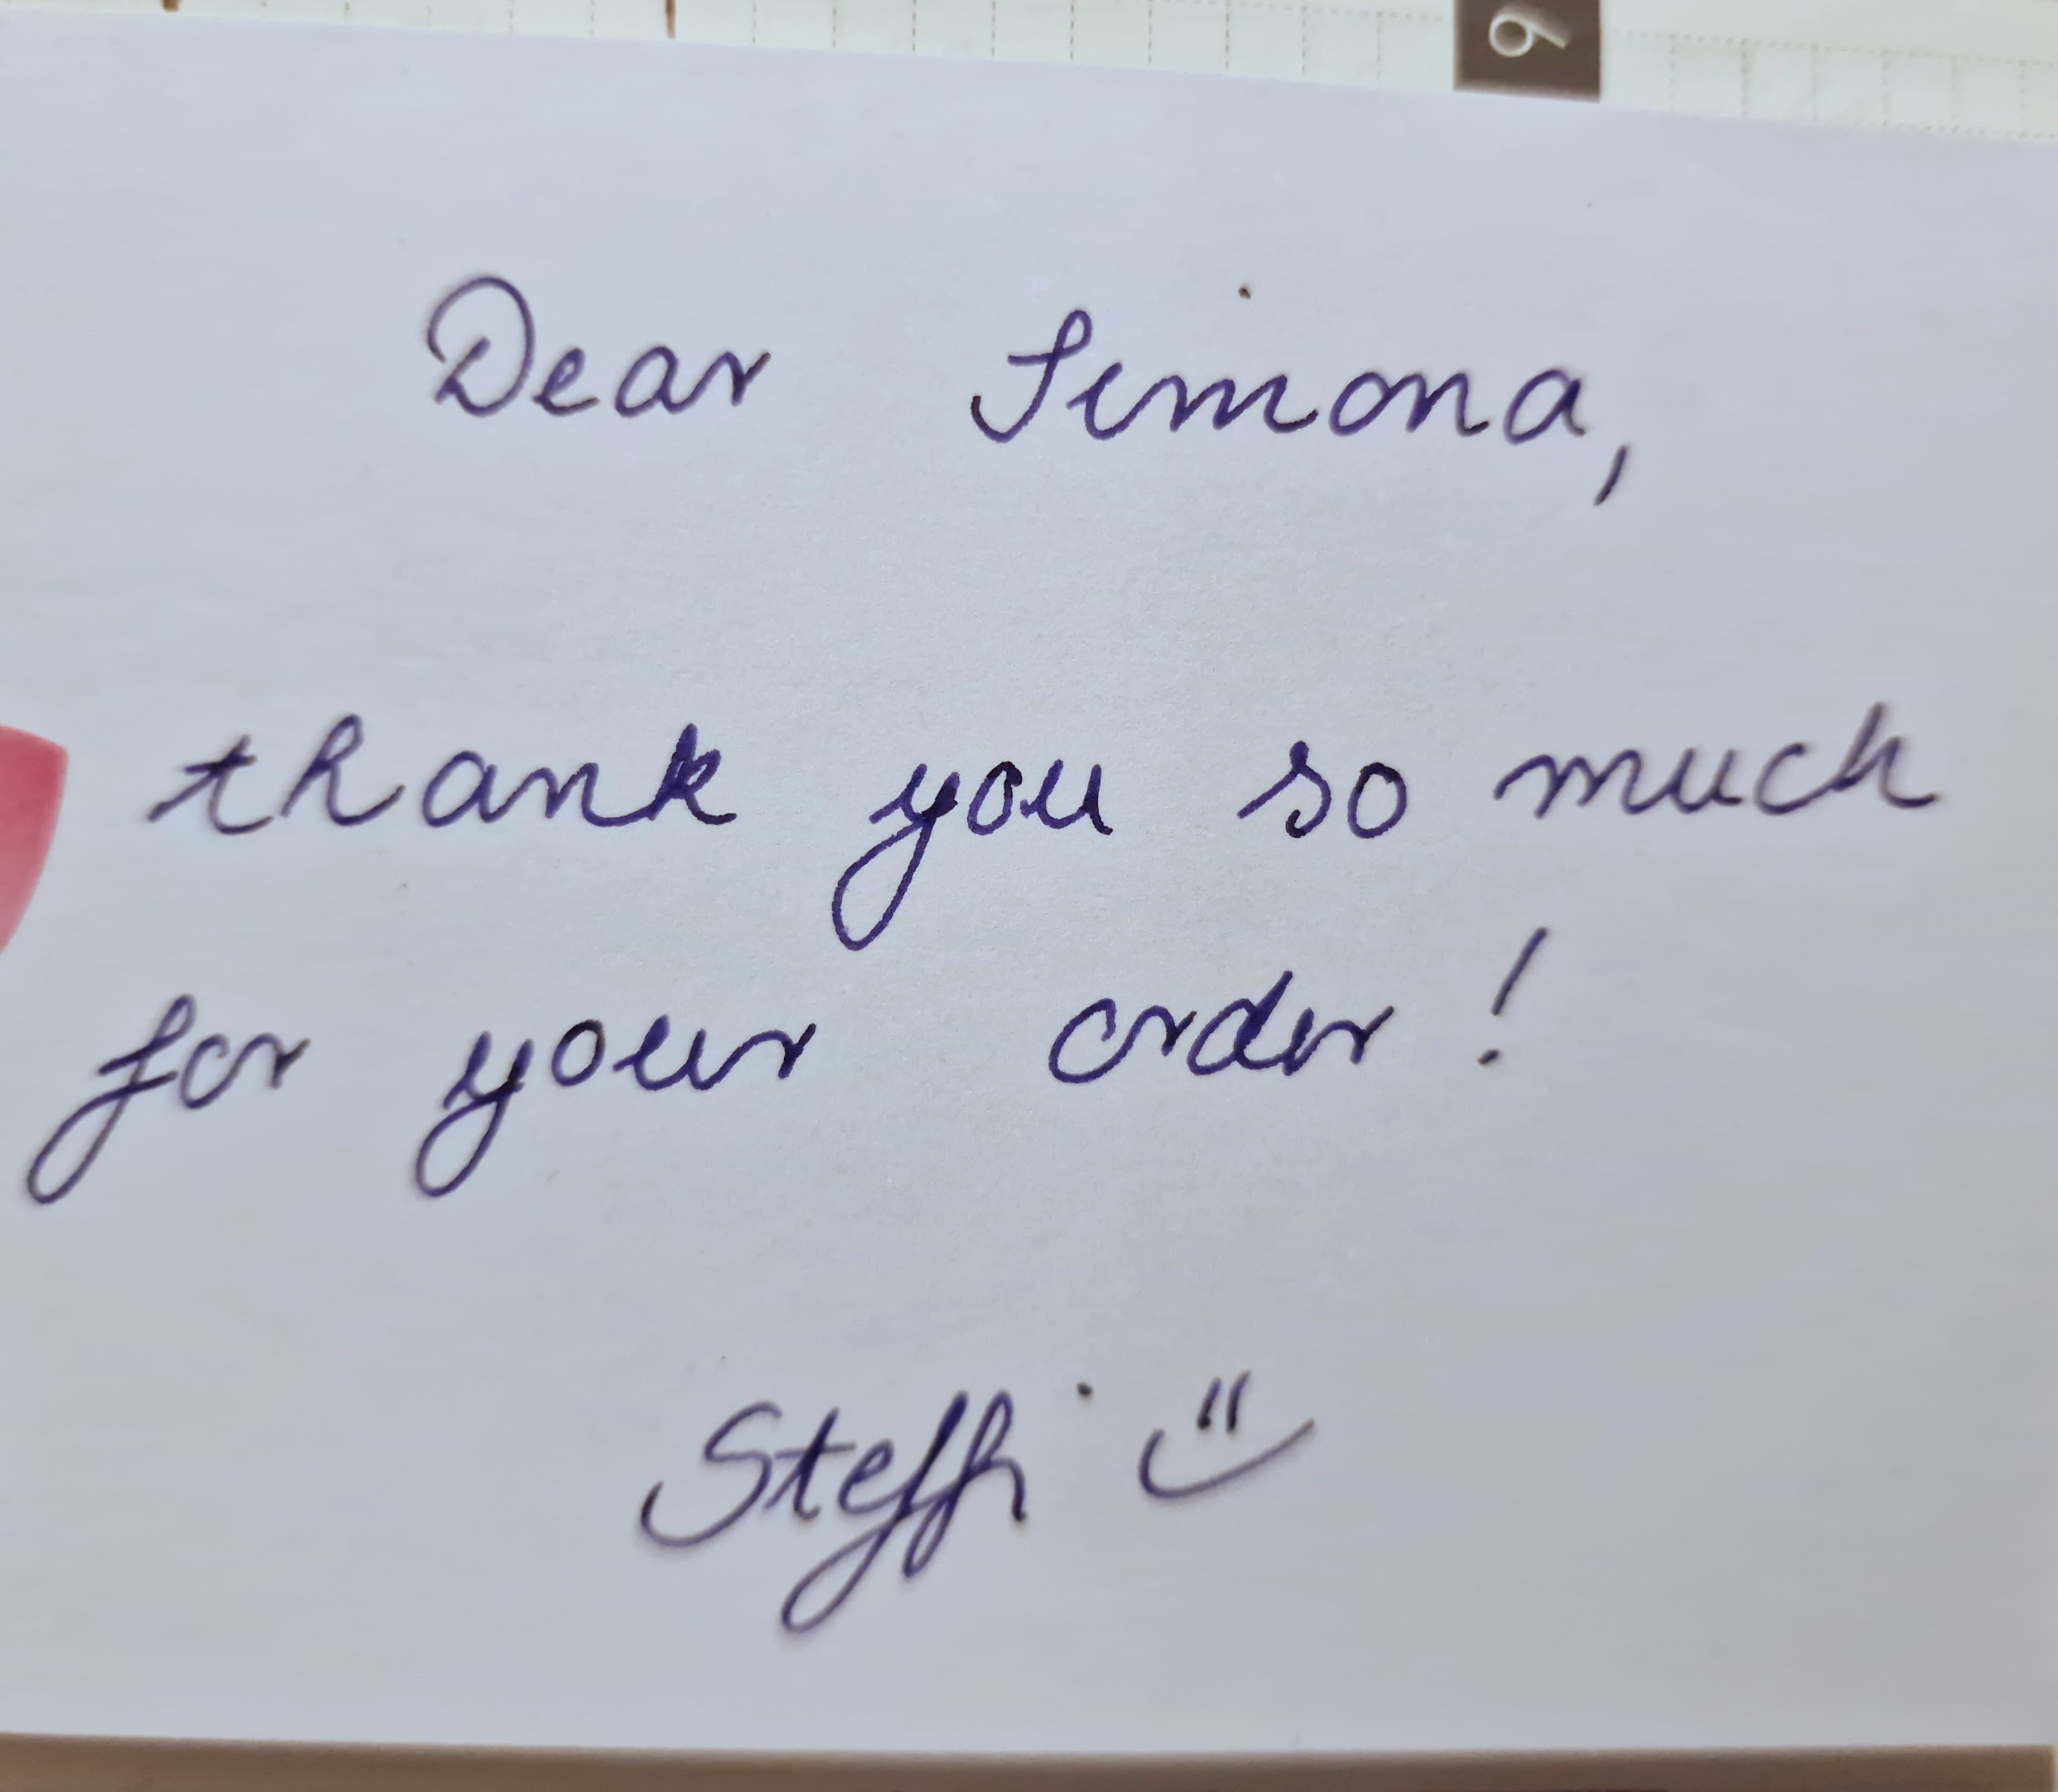 9
Dear Simona,
thank you so much
for your order!
Steffi